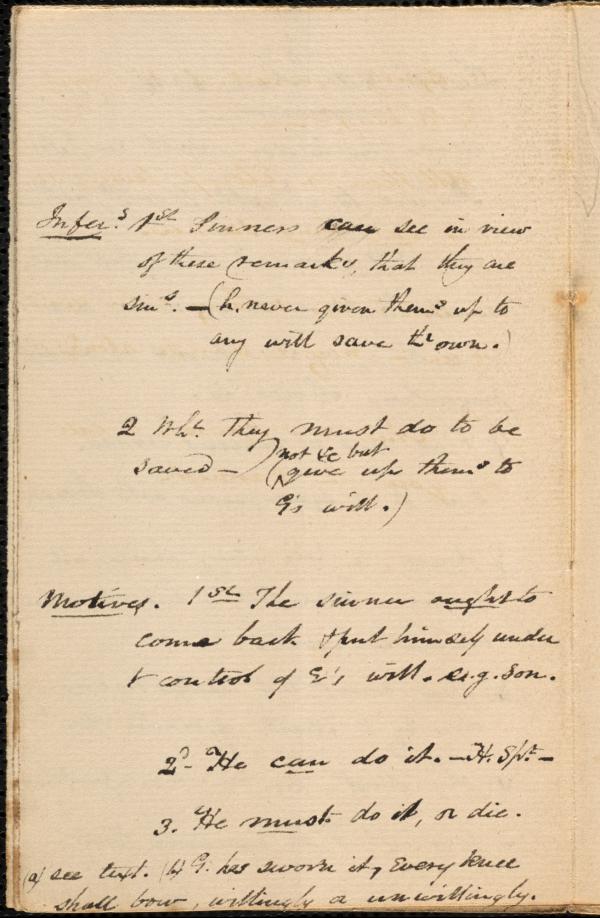 Infer.s 1st Sinners can see in view
of these remarks, that they are
sins. — (h. never given thems up to
any will save thr own.)
2 Wht. they must do to be
saved — (not &c but
give up thems to
G's will.)
Motives. 1st The sinner ought to
come back & put himself under
t control of G's will. e.g. Son.
2d- He can do it. — H. Spt. —
3. He must do it, or die.
(a) see text. (b) G. has sworn it, Every knee
shall bow, willingly or unwillingly.